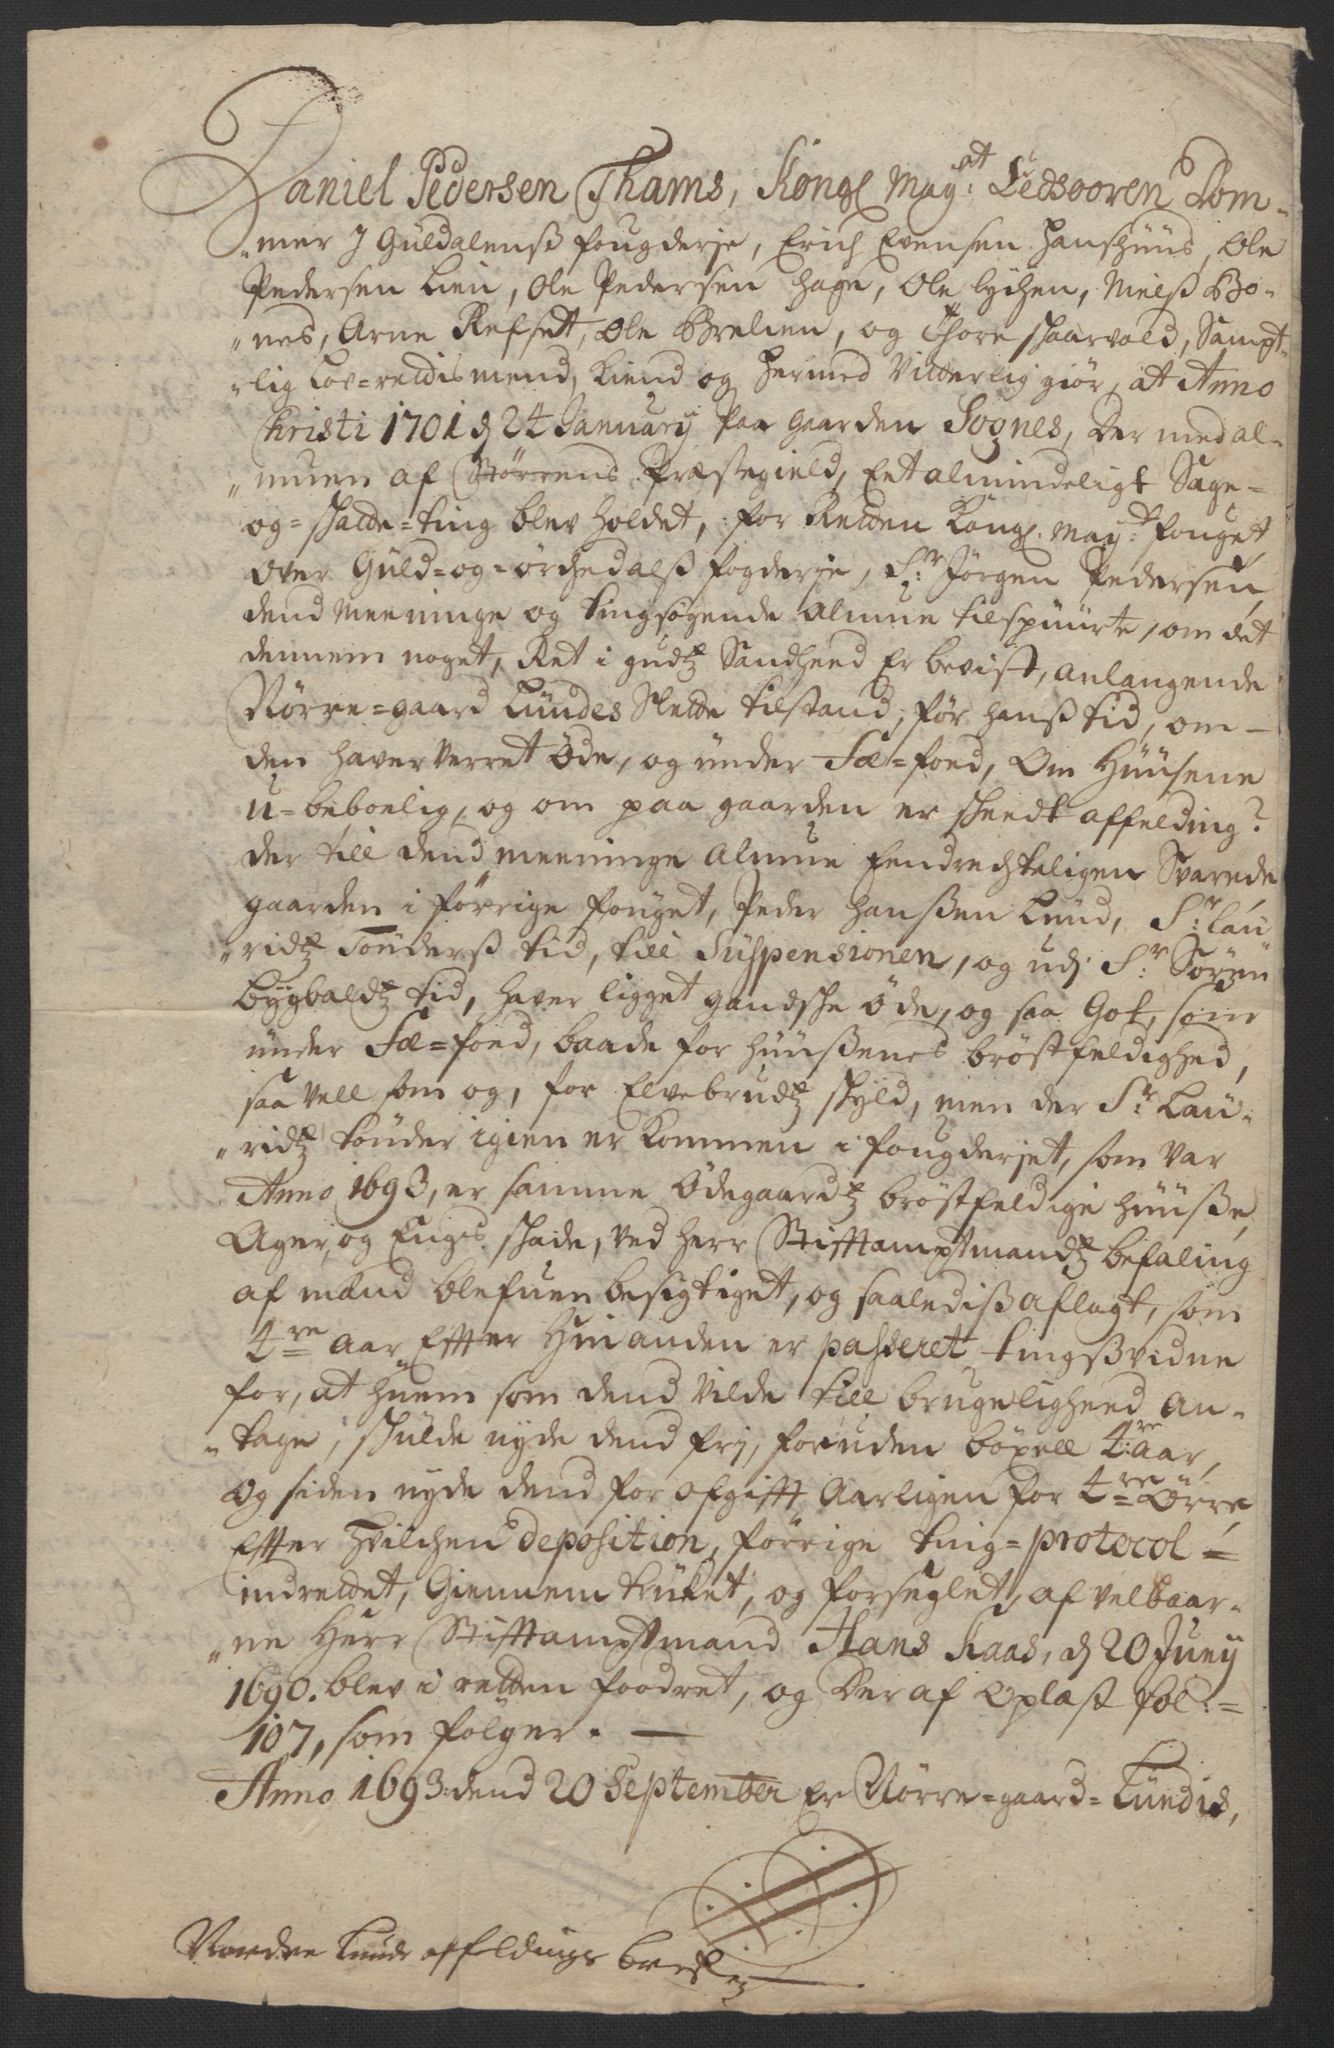 Daniel Pedersen Thams, Kongl May:at Eedsooren Dom-
"mer J Guldalenß fougderje, Erich Evensen Hanshuus, Ole
Pedersen Lien, Ole Pedersen Hage, Ole Lychen, Nielß Bo-
"nes, Arne Refset, Ole Brelien, og Thore Skaarvold, Sampt-
"lig Lov=rettismend, Kiend og Hermed Vitterlig giør, at Anno
Christi 1701 d 24 January Paa Gaarden Sognes, der med al-
"muen af Størrens Præstegield, Eet almindeligt Sage-
og=skatte=ting blev holdet, for Retten Kongl. May:ts fouget
over Guld=og=Orchedalß fogderje, Sr: Jørgen Pedersen,
dend Meeninge og tingsøgende Almue tilspuurte, om det
dennem noget, Ret i gudtz Sandheed Er bevist, anlangende
Nørre=gaard Lundes Slette tilstand, før hanß tid, om-
den haver verret Øde, og under Fæ=foed, Om Huusene
u=beboelig, og om paa gaarden er skeedt affelding?
der till dend meeninge Almue Eendrechteligen Svarede
gaarden i forrige fouget, Peder Hanßen Lund, Sr: Lau
"ridtz Tønderß tid, till Suspensionen, og udj Sr: Søren
Bygbaldtz tid, haver ligget gandske øde, og saa Got, som
under Fæ=foed, baade for Huußenes brøstfeldighed,
saa vell som og, for Elvebrudtz skyld, men der Sr: Lau-
"ridtz Tønder igien er kommen i fougderjet, som var
Anno 1693, er samme Ødegaardtz brøstfeldige huuße,
Ager, og Engs skade, ved Herr Stifftamptmandtz befaling
af mænd blefuen besigtiget, og saaledis aflagt, som
4re aar Effter Hinanden er passeret tingßvidne
for, at huem som dend vilde till brugeligheed an-
"tage, skulde nyde dend frj, foruden bøxell 4re: aar,
og siden nyde dend for afgifft aarligen for 4re Ørre,
Effter Hvilchen deposition, forrige ting=protocol=
indrettet, Giennem trukket, og forseglet, af velbaar-
"ne Herr Stifftamptmand Hans Kaas, d 20 Juny
1690. blev i retten foodret, og der af Oplæst fol:=
107, som følger. —
Anno 1693 dend 20 September Er Nørre=gaard=Lundis,
Nordre Lunds affeldings breff